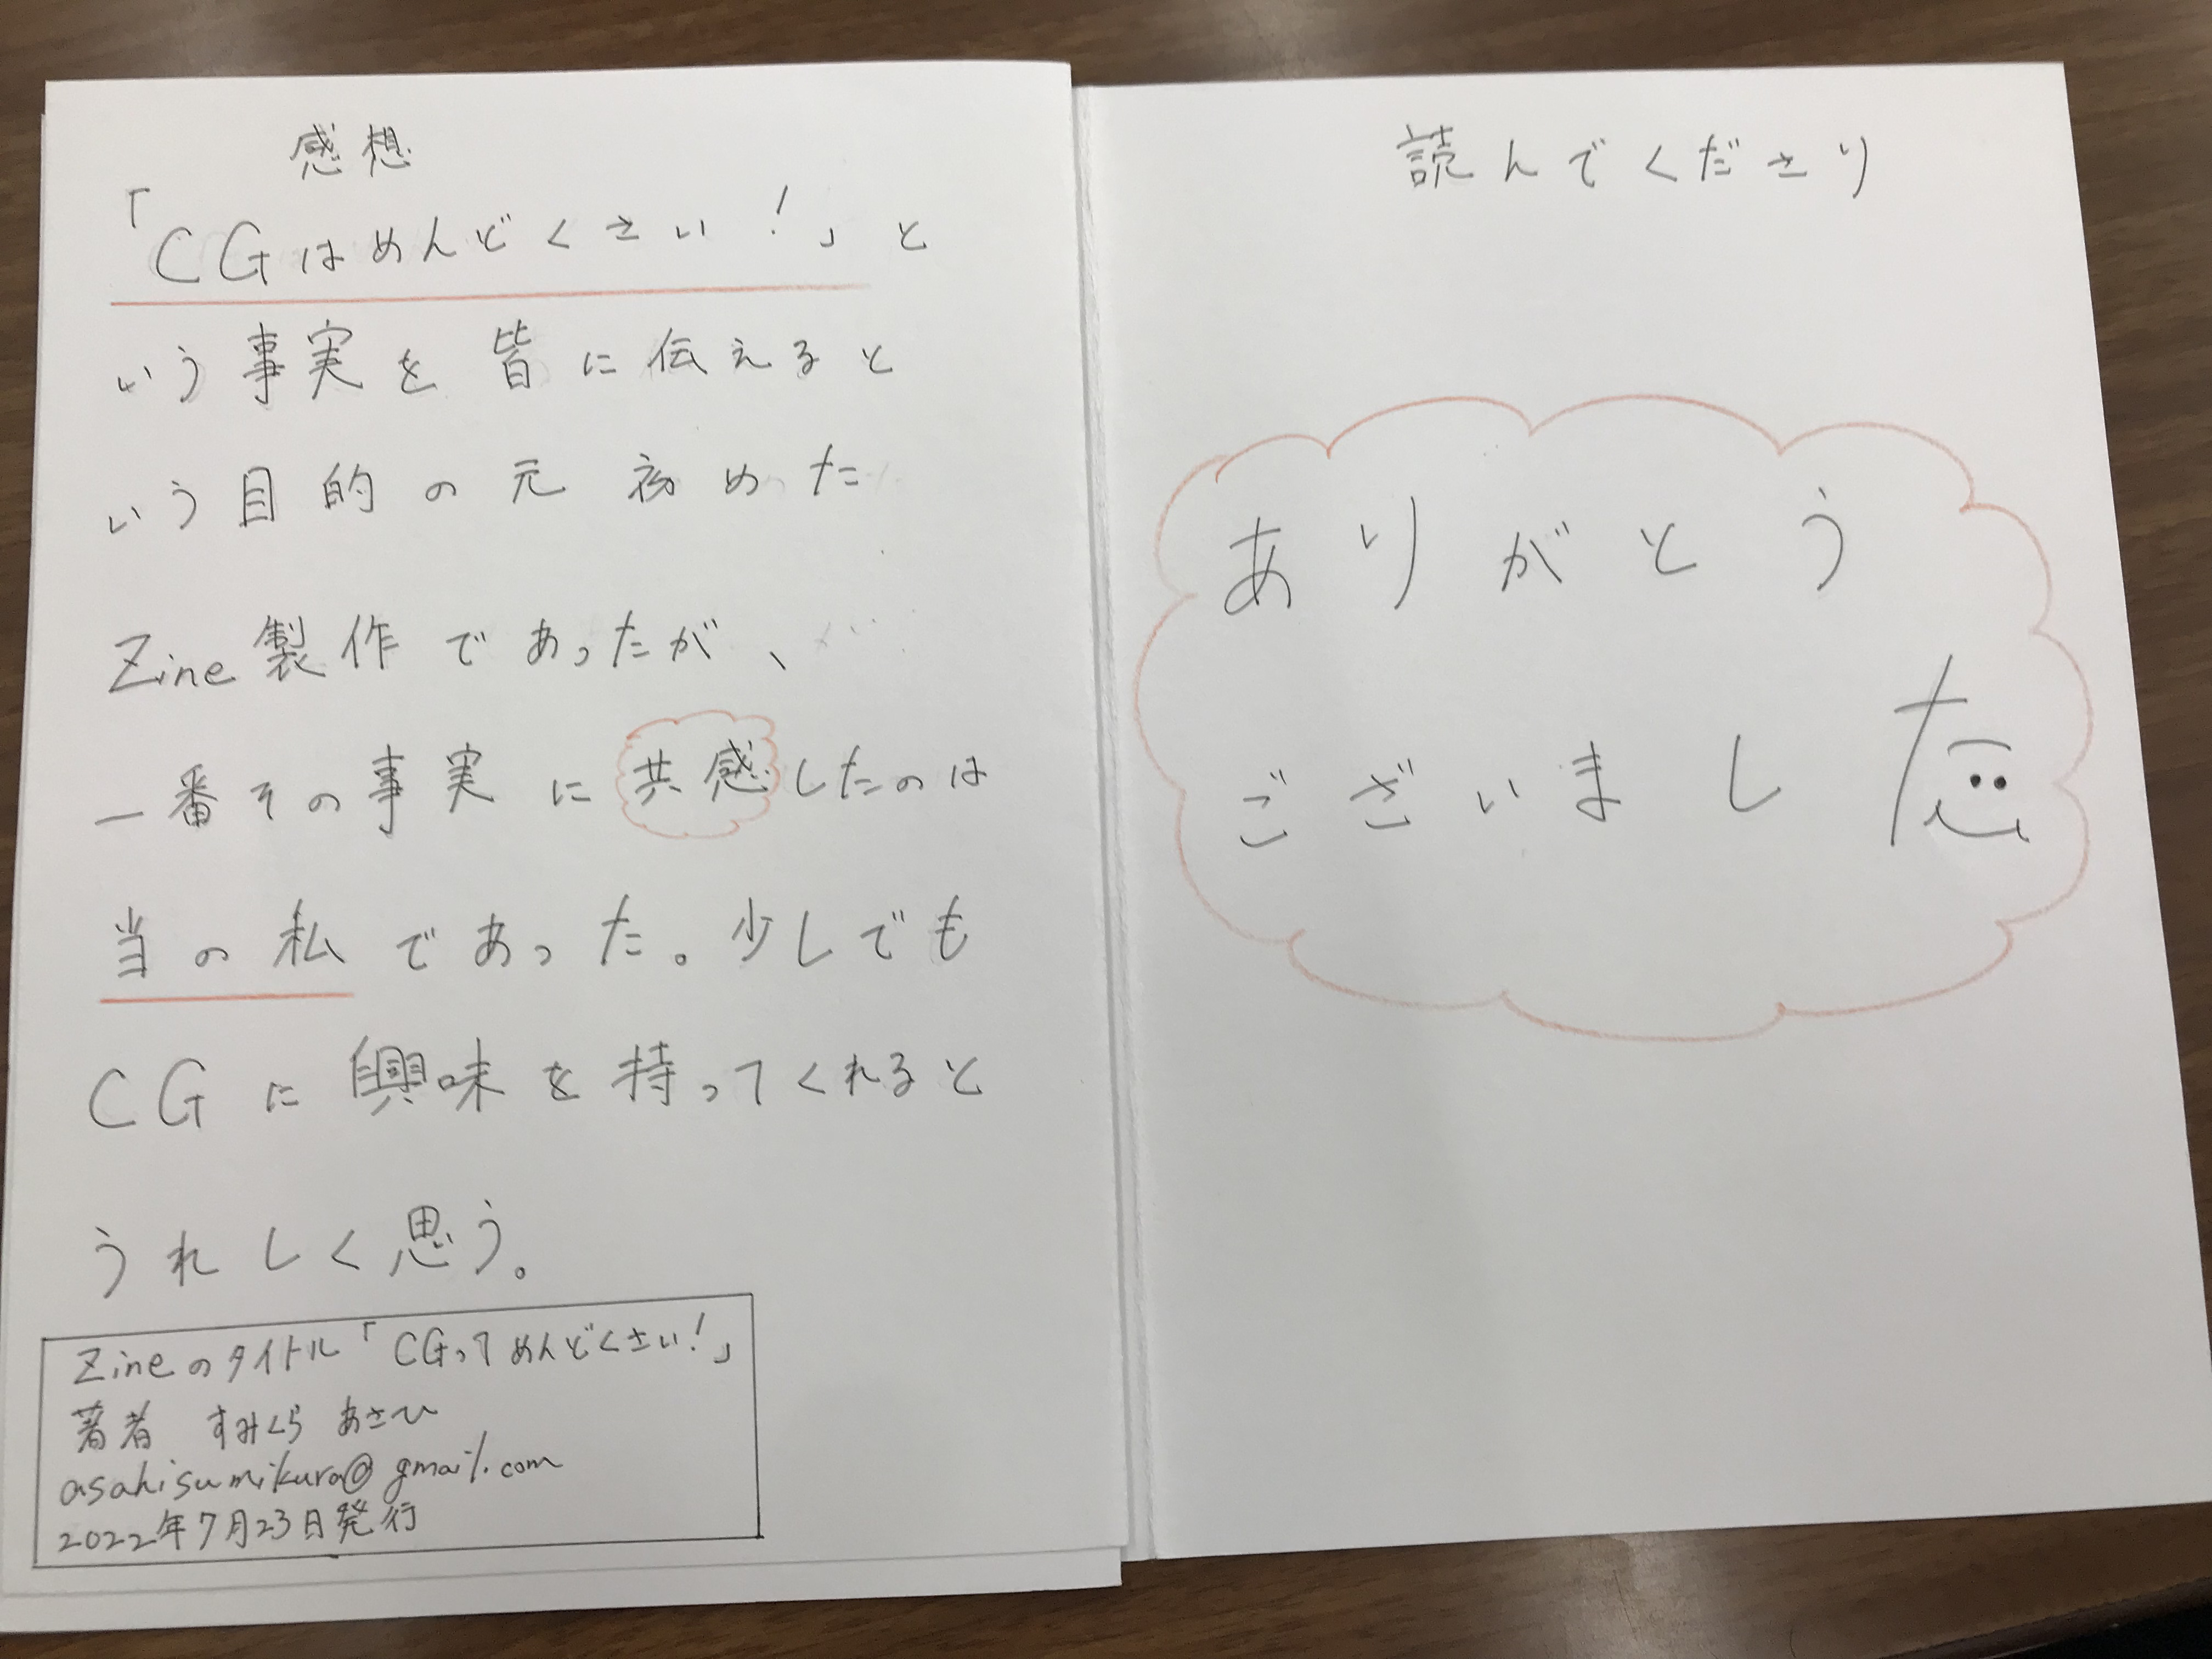 感想
「CGはめんどくさい！」と
いう事実を皆に伝えると
いう目的の元初めた
Zine製作であったが、
一番その事実に共感したのは
当の私であった。少しでも
CGに興味を持ってくれると
うれしく思う。
Zineのタイトル「CGってめんどくさい！」
著者 すみくら あさひ
asahisumikura@gmail.com
2022年7月23日発行
読んでくださり
ありがとう
ございました